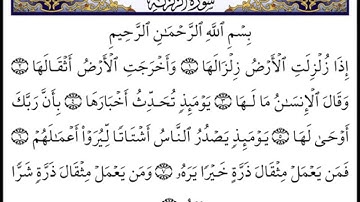 سورة الزلزلة
بِسۡمِ ٱللَّهِ ٱلرَّحۡمَٰنِ ٱلرَّحِيمِ
إِذَا زُلۡزِلَتِ ٱلۡأَرۡضُ زِلۡزَالَهَا ١ وَأَخۡرَجَتِ ٱلۡأَرۡضُ أَثۡقَالَهَا ٢
وَقَالَ ٱلۡإِنسَٰنُ مَا لَهَا ٣ يَوۡمَئِذٖ تُحَدِّثُ أَخۡبَارَهَا ٤ بِأَنَّ رَبَّكَ
أَوۡحَىٰ لَهَا ٥ يَوۡمَئِذٖ يَصۡدُرُ ٱلنَّاسُ أَشۡتَاتٗا لِّيُرَوۡاْ أَعۡمَٰلَهُمۡ ٦
فَمَن يَعۡمَلۡ مِثۡقَالَ ذَرَّةٍ خَيۡرٗا يَرَهُۥ ٧ وَمَن يَعۡمَلۡ مِثۡقَالَ ذَرَّةٖ شَرّٗا